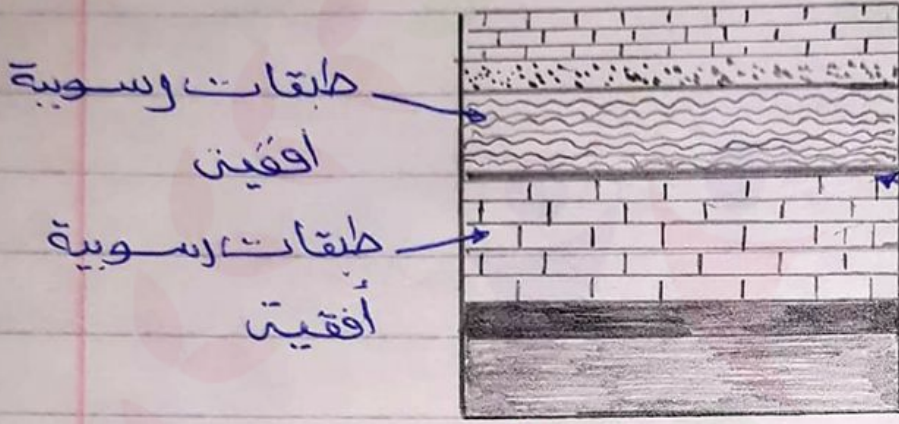 طبقات وسوبية
أفقية
طبقات رسوبية
أفقية